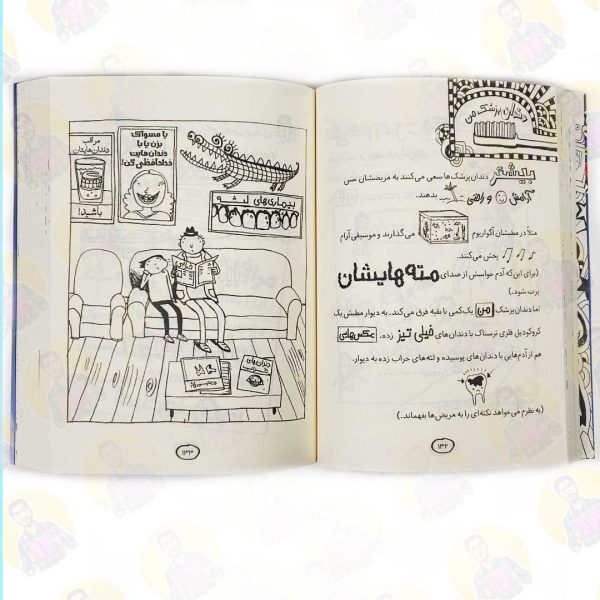 دندان‌پزشک من
بیشتر دندان‌پزشک‌ها سعی می‌کنند به مریضشان حس
آرامش و راحتی بدهند.
مثلاً در مطبشان آکواریوم می‌گذارند و موسیقی آرام
پخش می‌کنند.
(برای این‌که آدم حواسش از صدای مته‌هایشان
پرت شود.)
اما دندان‌پزشک من یک کمی با بقیه فرق می‌کند. به دیوار مطبش یک
کروکودیل فلزی ترسناک با دندان‌های خیلی تیز زده. عکس‌های
هم از آدم‌هایی با دندان‌های پوسیده و لثه‌های خراب زده به دیوار.
(به نظرم می‌خواهد نکته‌ای را به مریض‌ها بفهماند.)
۱۳۲
مراقب
دندان‌هایتان
باشید!
یا مسواک
بزن یا با
دندان‌هایت
خداحافظی کن!
بیماری‌های لثه
دندان‌های
خراب
۱۳۳